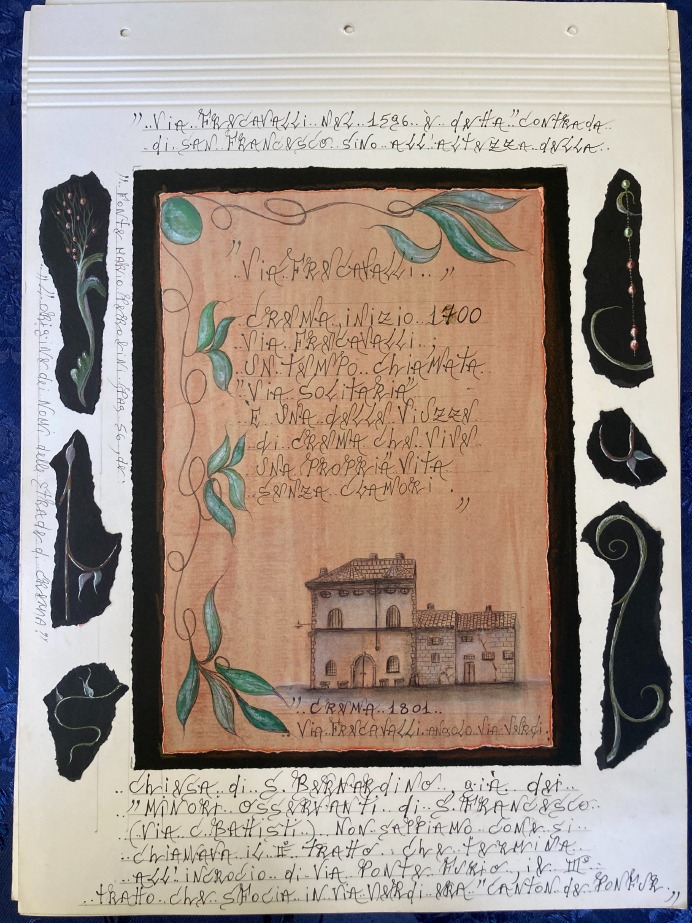 "..Via Frecavalli.. nel 1596 è detta "contrada..
di San Francesco sino all'altezza della..
"Fonte Mario Perolini (pag. 56, de
"L'origine dei nomi delle strade di Crema"
"..Via Frecavalli..."
Crema inizio 1700
Via Frecavalli ;
un tempo chiamata
"Via Solitaria"
È una delle viuzze
di Crema che vive
una propria vita
senza clamori .
"
"..Crema 1801..
Via Frecavalli angolo Via Verdi.
..chiesa di S. Bernardino, già dei..
"Minori Osservanti di S. Francesco
(Via C. Battisti). Non sappiamo come si..
..chiamava il II° tratto.. che termina..
all'incrocio di Via Ponte Furio, il III°
..tratto che sfocia in Via Verdi era "Canton de Ponfur..
"